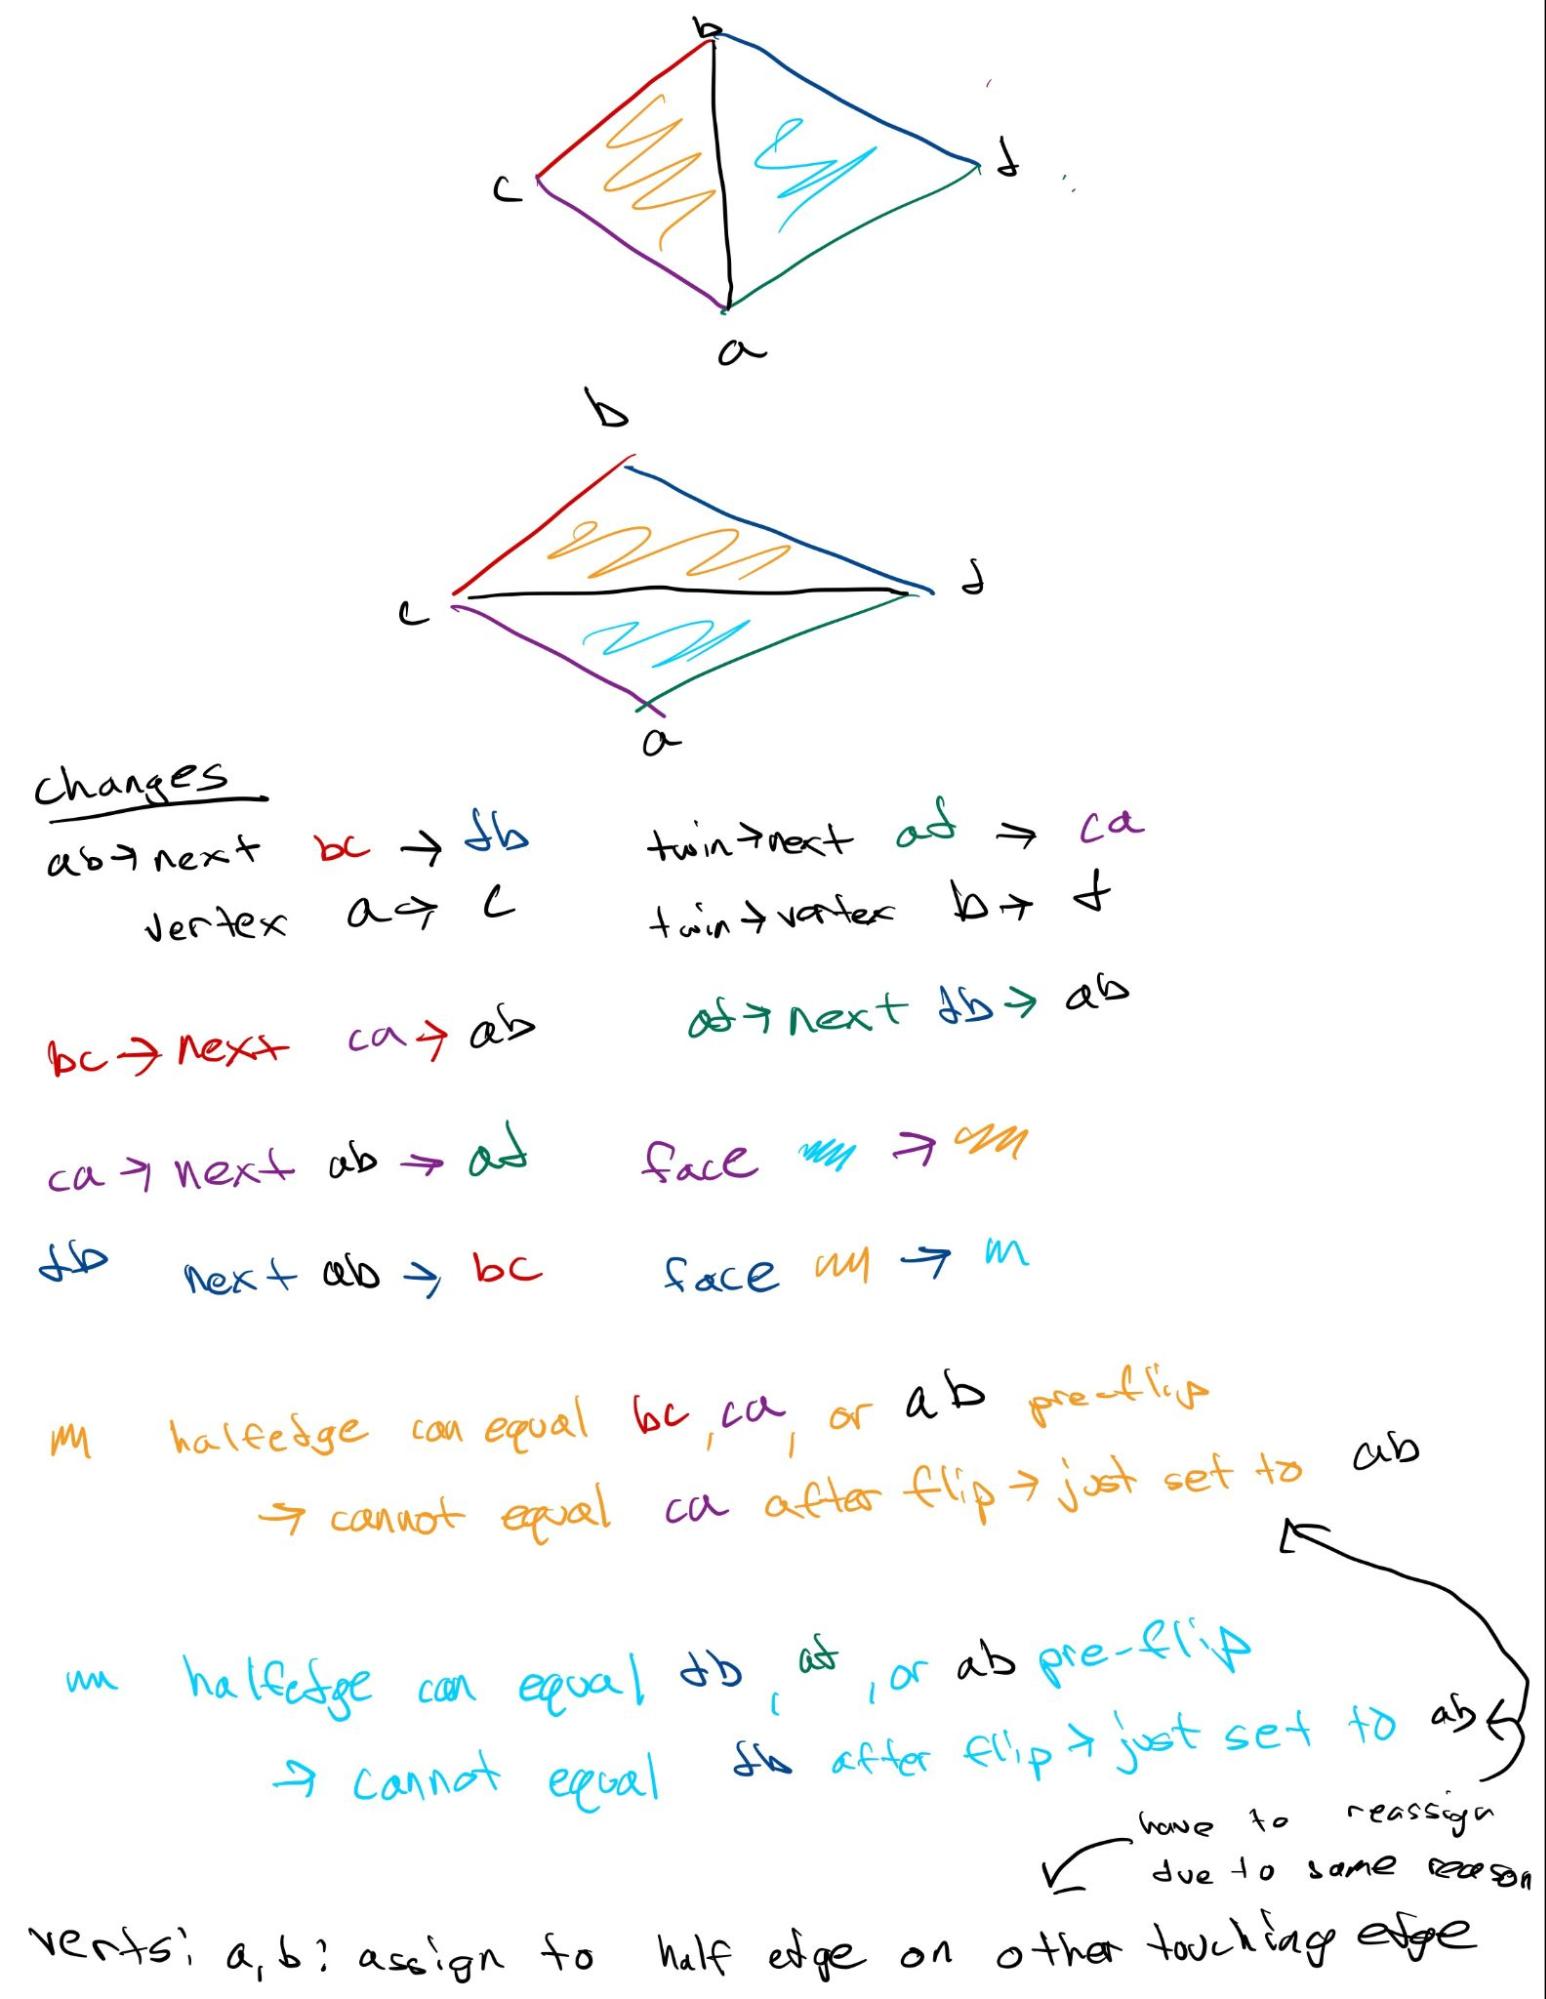 b
c
d
a
b
c
d
a
changes
ab→next bc → db twin→next ad → ca
vertex a → c twin→vertex b → d
bc → next ca → ab ad→next db → ab
ca → next ab → ad face →
db next ab → bc face →
halfedge can equal bc, ca, or ab pre-flip
→ cannot equal ca after flip → just set to ab
halfedge can equal db, ad, or ab pre-flip
→ cannot equal db after flip → just set to ab
have to reassign
due to same reason
verts: a, b: assign to half edge on other touching edge